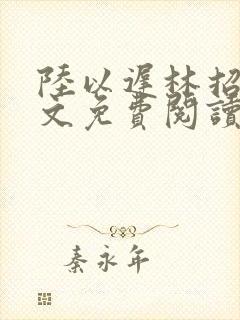 陸以遲林招
文免費閱讀
秦永年